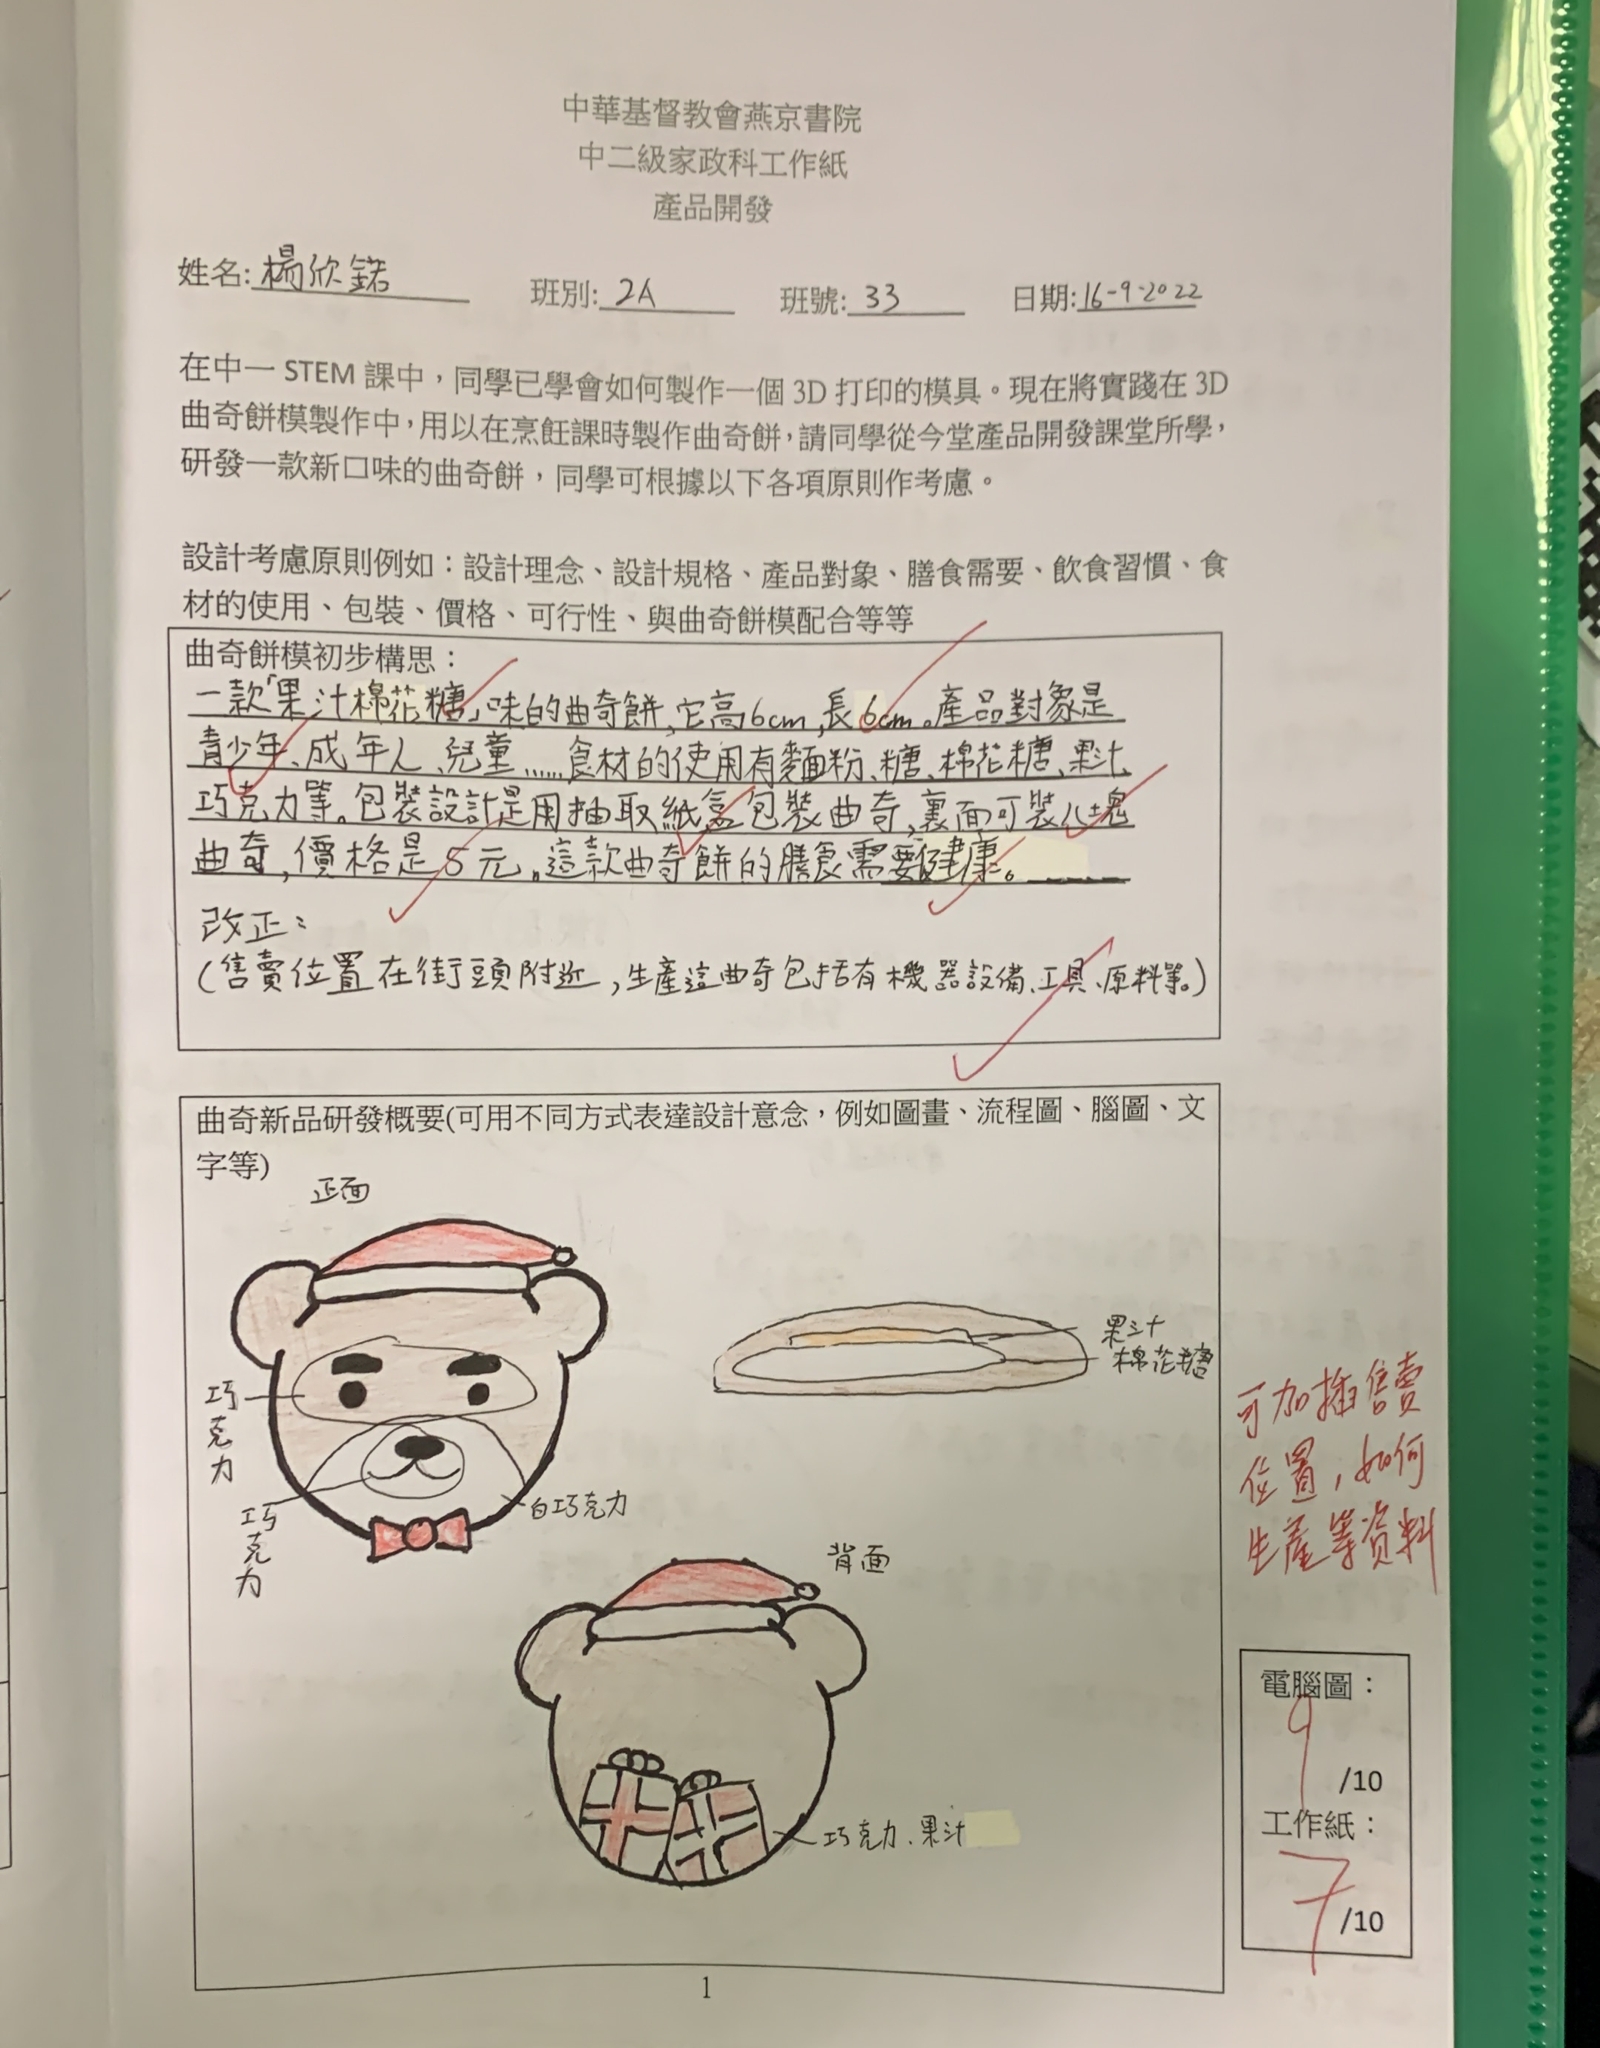 中華基督教會燕京書院
中二級家政科工作紙
產品開發
姓名:楊欣鍩 班別:2A 班號:33 日期:16-9-2022
在中一 STEM 課中，同學已學會如何製作一個 3D 打印的模具。現在將實踐在 3D
曲奇餅模製作中，用以在烹飪課時製作曲奇餅，請同學從今堂產品開發課堂所學，
研發一款新口味的曲奇餅，同學可根據以下各項原則作考慮。
設計考慮原則例如：設計理念、設計規格、產品對象、膳食需要、飲食習慣、食
材的使用、包裝、價格、可行性、與曲奇餅模配合等等
曲奇餅模初步構思：
一款「果汁棉花糖」味的曲奇餅,它高6cm,長6cm。產品對象是
青少年、成年人、兒童......食材的使用有麵粉、糖、棉花糖、果汁、
巧克力等。包裝設計是用抽取紙盒包裝曲奇,裏面可裝八塊
曲奇,價格是5元。這款曲奇餅的膳食需要健康。
改正：
(售賣位置在街頭附近,生產這曲奇包括有機器設備、工具、原料等。)
曲奇新品研發概要(可用不同方式表達設計意念，例如圖畫、流程圖、腦圖、文
字等)
正面
果汁
棉花糖
巧克力
巧克力
白巧克力
可加插售賣
位置，如何
生產等資料
背面
巧克力、果汁
電腦圖：
9
/10
工作紙：
7
/10
1